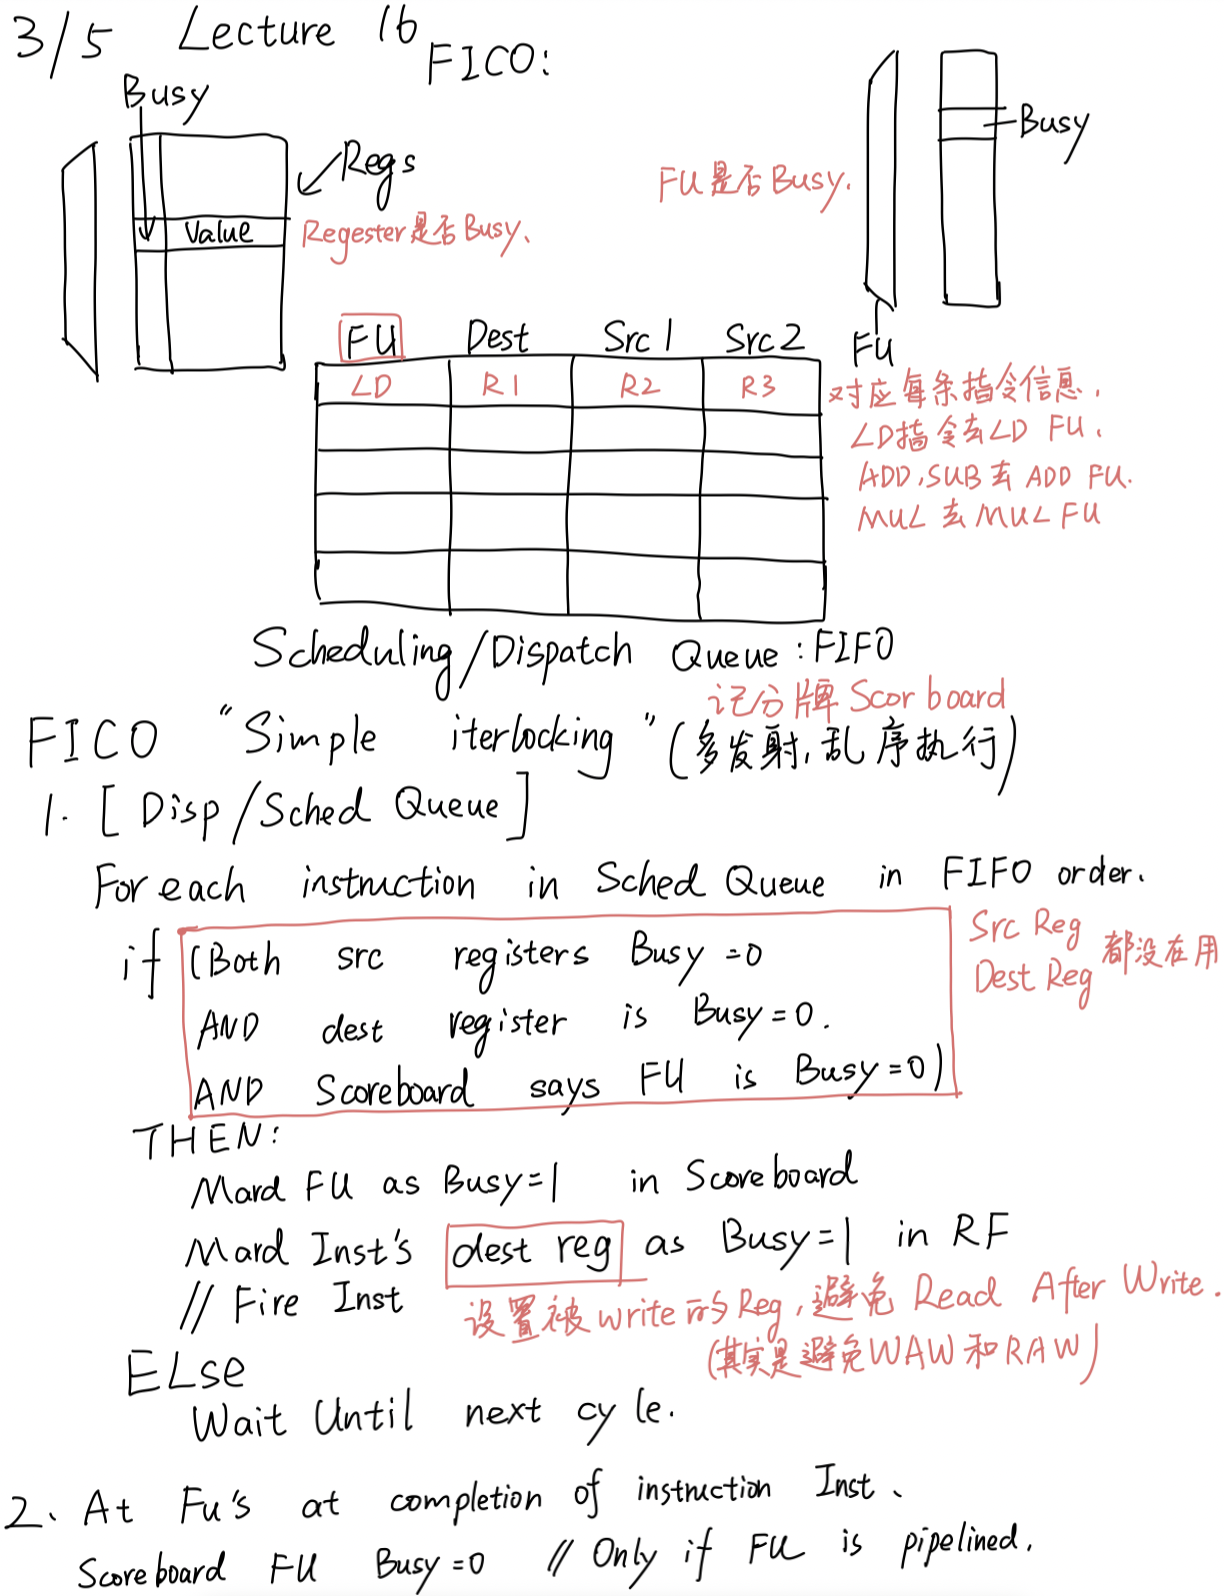 3/5 Lecture 16
FICO:
Busy
Regs
Value
Regester是否Busy、
FU是否Busy.
Busy
FU
FU Dest Src1 Src2
LD R1 R2 R3
对应每条指令信息,
LD指令去LD FU、
ADD,SUB去ADD FU.
MUL去MUL FU
Scheduling/Dispatch Queue:FIFO
记分牌Scorboard
FICO "Simple iterlocking"(多发射,乱序执行)
1. [Disp/Sched Queue]
For each instruction in Sched Queue in FIFO order.
if (Both src registers Busy=0
AND dest register is Busy=0.
AND Scoreboard says FU is Busy=0)
Src Reg
Dest Reg 都没在用
THEN:
Mard FU as Busy=1 in Scoreboard
Mard Inst's dest reg as Busy=1 in RF
// Fire Inst
设置被write的Reg,避免Read After Write.
(其实是避免WAW和RAW)
ELSe
Wait Until next cycle.
2、At Fu's at completion of instruction Inst、
Scoreboard FU Busy=0 // Only if FU is pipelined.